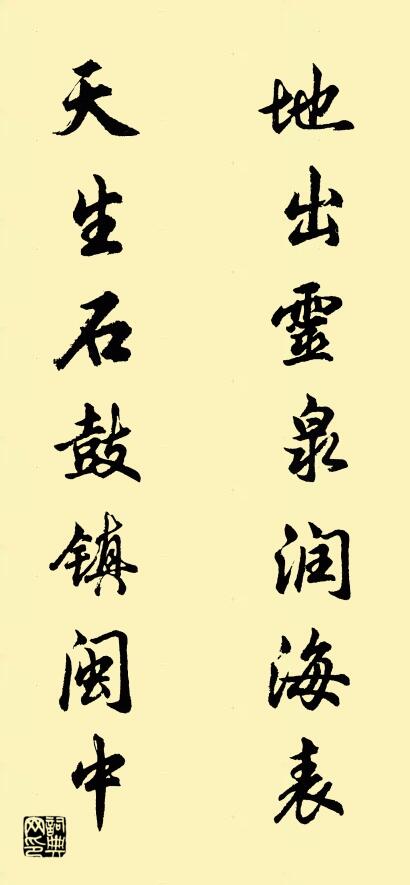 地出靈泉润海表
天生石鼓镇闽中
詞典网印